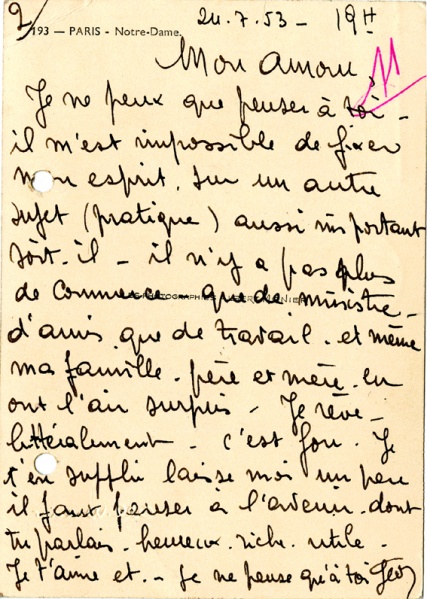 2/
193 — PARIS - Notre-Dame.
24.7.53 - 19H
Mon amour,
11
Je ne peux que penser à toi -
il m'est impossible de fixer
mon esprit. sur un autre
sujet (pratique) aussi important
soit-il - il n'y a pas plus
de commerce - que de ministre -
d'amis que de travail. et même
ma famille. père et mère. en
ont l'air surpris - Je rêve -
littéralement - c'est fou. Je
t'en supplie laisse moi un peu
il faut penser à l'avenir. dont
tu parlais. heureux. riche. utile -
Je t'aime et. - je ne pense qu'à toi Geo